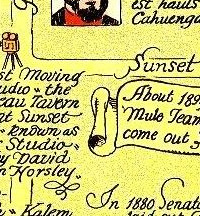 est hauls
Cahuenga
Sunset
st Moving
udio - the
eau Tavern
at Sunset
- known as
Studio -
y David
n Horsley.
About 189
Mule Team
come out
Kalem
In 1880 Senat